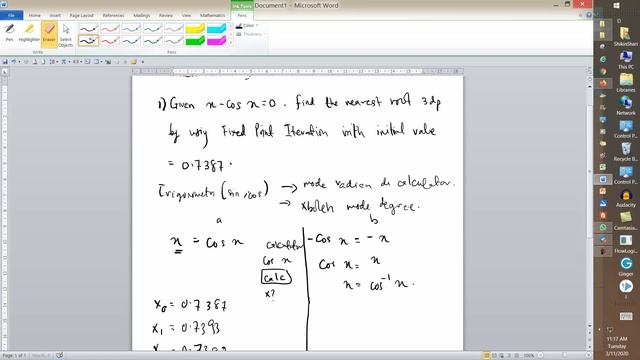 Document1 - Microsoft Word
Ink Tools
File
Home
Insert
Page Layout
References
Mailings
Review
View
Mathematics
Pens
Pen
Highlighter
Eraser
Select
Objects
Color
Thickness
Write
Pens
1) Given x - cos x = 0 . find the nearest root 3dp
by using Fixed Point Iteration with initial value
= 0.7387.
Trigonometri (sin, cos) → mode radian di calculator.
→ xboleh mode degree.
a
b
x = cos x
calculator
cos x
calc
x?
- cos x = - x
cos x = x
x = cos⁻¹ x .
x₀ = 0.7387
x₁ = 0.7393
D
This PC
Libraries
Network
Control P
Recycle Bi
Control P
Camtasia
Ginger
Page: 1 of 1
100%
11:17 AM